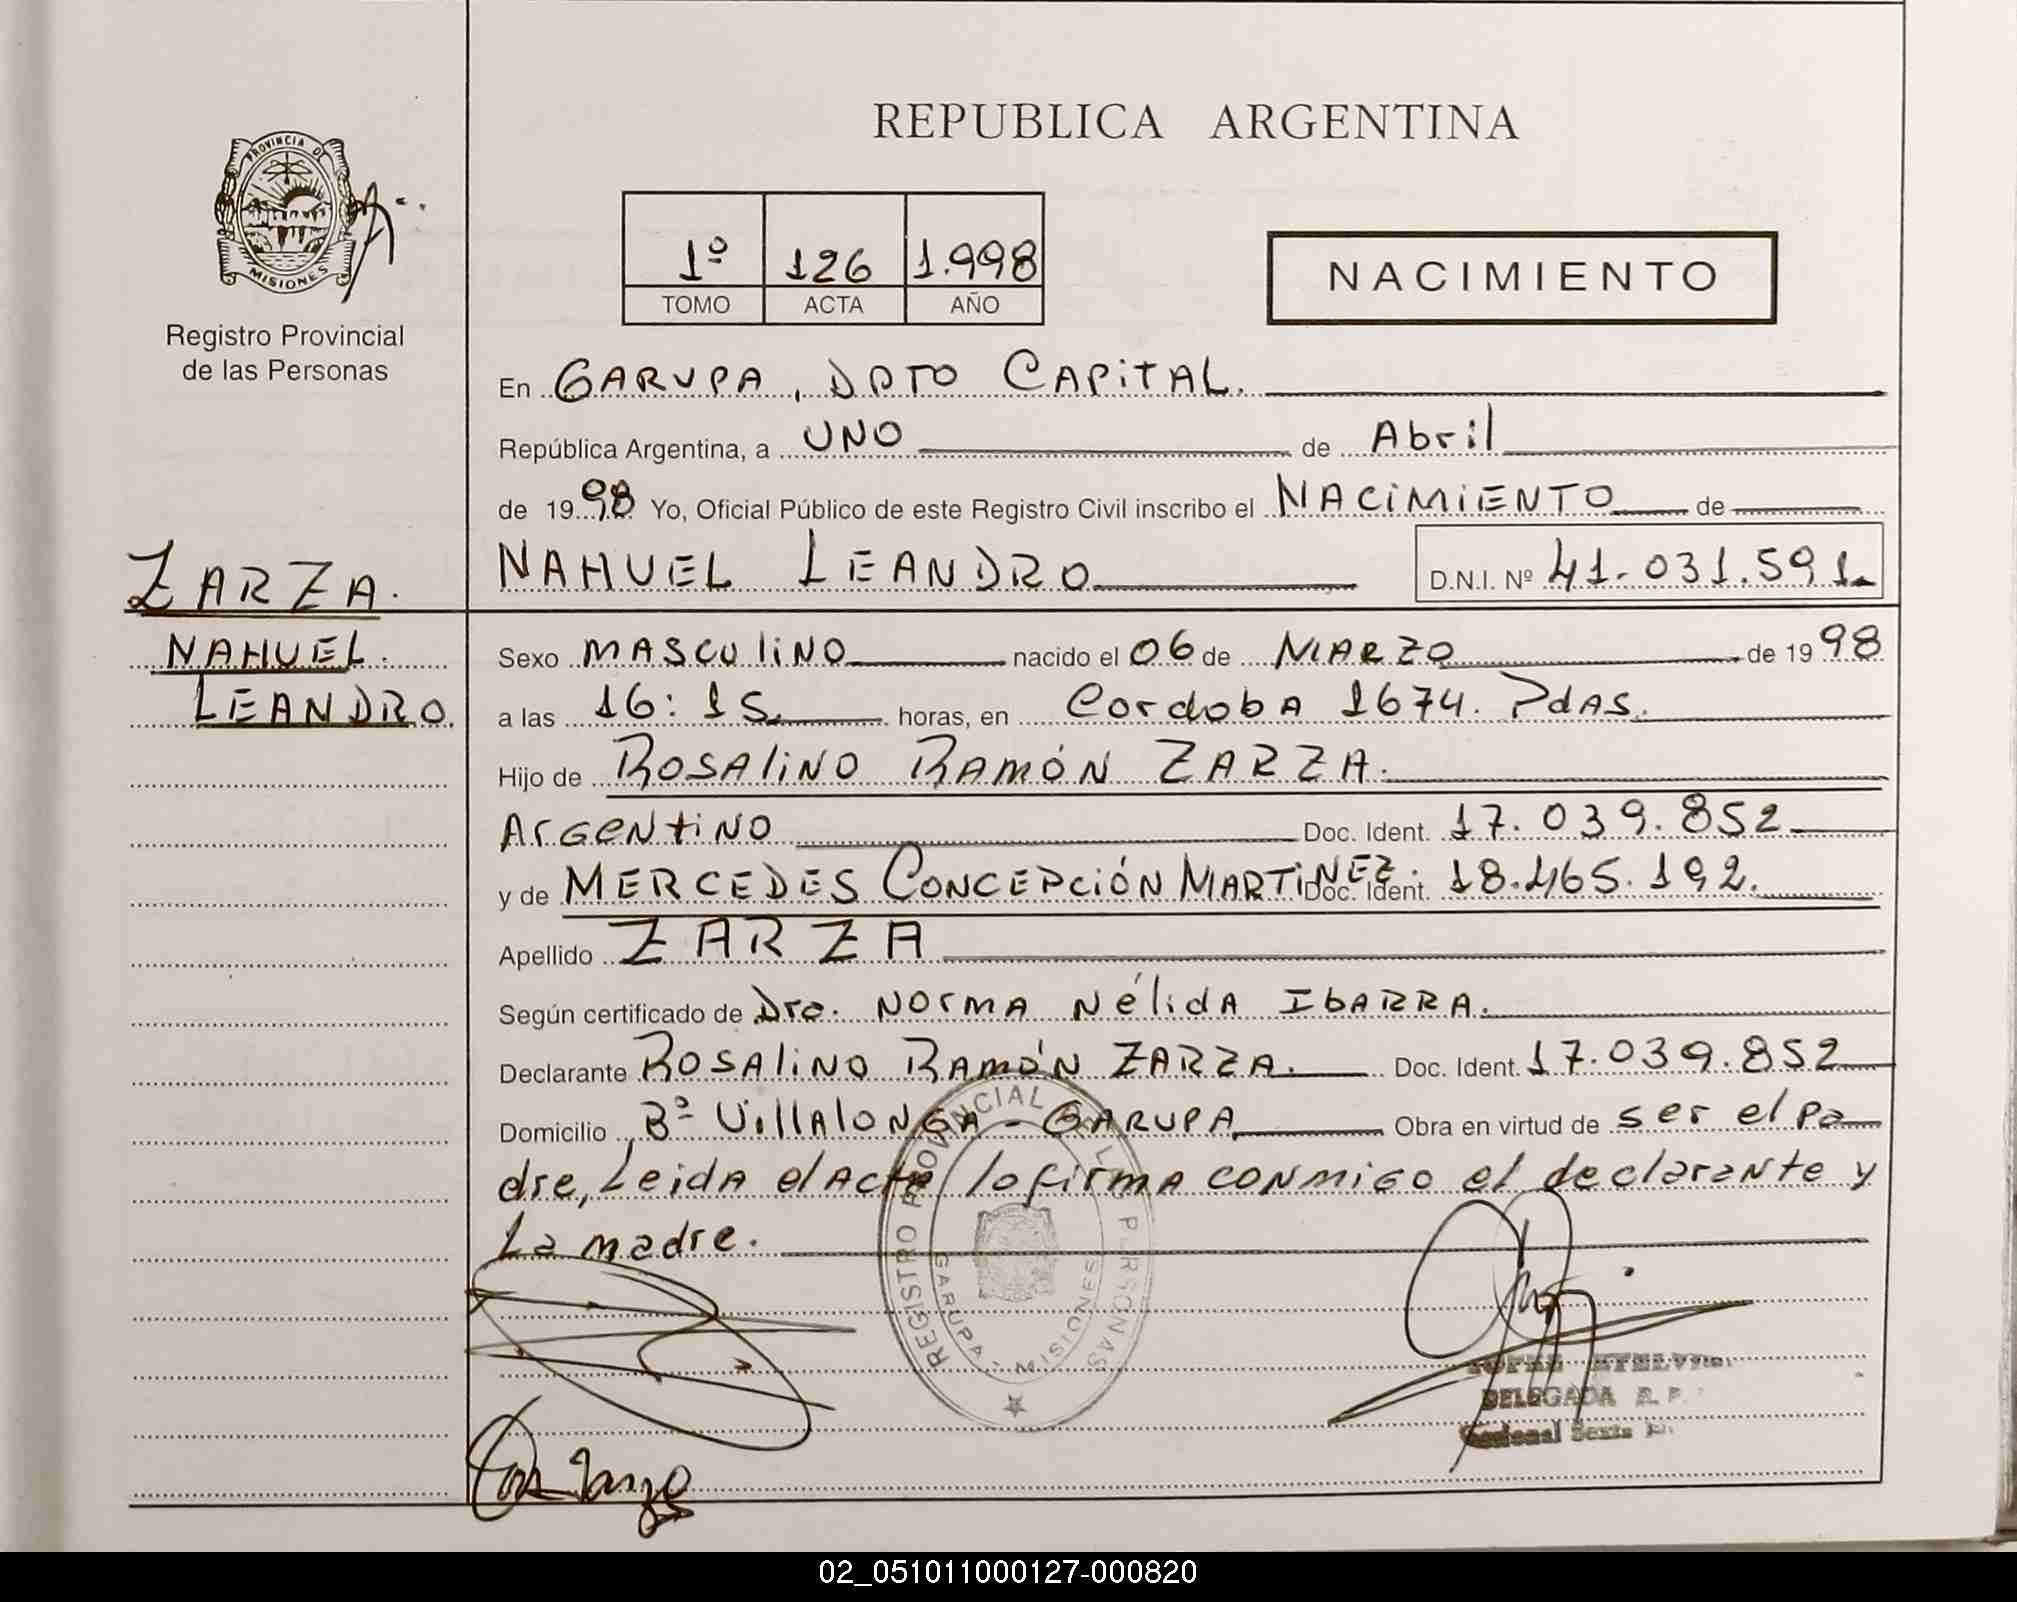 REPUBLICA ARGENTINA
PROVINCIA DE
MISIONES
Registro Provincial
de las Personas
1º 126 1.998
TOMO ACTA AÑO
NACIMIENTO
En GARUPA, DPTO CAPITAL.
República Argentina, a UNO de Abril
de 1998 Yo, Oficial Público de este Registro Civil inscribo el NACIMIENTO de
NAHUEL LEANDRO D.N.I. Nº 41.031.591
ZARZA.
NAHUEL
LEANDRO.
Sexo MASCULINO nacido el 06 de MARZO de 1998
a las 16:15 horas, en Cordoba 1674. Pdas.
Hijo de ROSALINO RAMÓN ZARZA.
Argentino Doc. Ident. 17.039.852
y de MERCEDES CONCEPCIÓN MARTINEZ. Doc. Ident. 18.465.192.
Apellido ZARZA
Según certificado de Dra. NORMA Nélida IBARRA.
Declarante ROSALINO RAMÓN ZARZA. Doc. Ident. 17.039.852
Domicilio Bº Villalonga - GARUPA Obra en virtud de ser el pa-
dre, Leida el Acta lo firma conmigo el declarante y
La madre.
REGISTRO PROVINCIAL DE LAS PERSONAS
GARUPA - MISIONES
DELEGADA R. P.
02_051011000127-000820